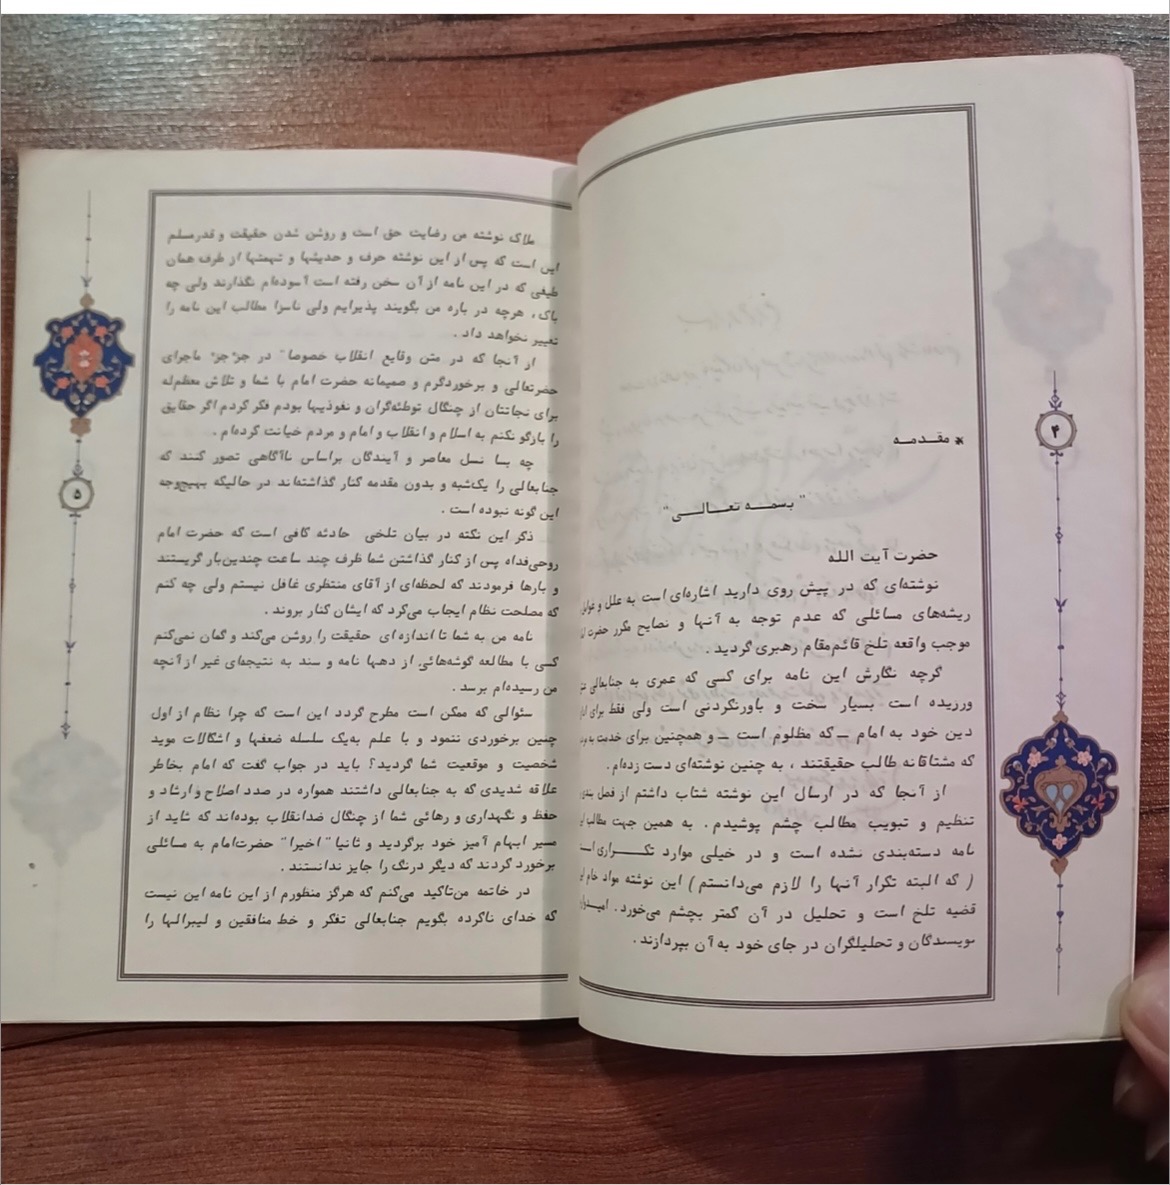 ۴
* مقدمه
"بسمه تعالی"
حضرت آیت الله
نوشته‌ای که در پیش روی دارید اشاره‌ای است به علل و
ریشه‌های مسائلی که عدم توجه به آنها و نصایح مکرر حضرت
موجب واقعه تلخ قائم‌مقام رهبری گردید .
گرچه نگارش این نامه برای کسی که عمری به جنابعالی
ورزیده است بسیار سخت و باورنکردنی است ولی فقط برای
دین خود به امام ــ که مظلوم است ــ و همچنین برای خدمت به
که مشتاقانه طالب حقیقتند ، به چنین نوشته‌ای دست زده‌ام.
از آنجا که در ارسال این نوشته شتاب داشتم از فصل بندی
تنظیم و تبویب مطالب چشم پوشیدم . به همین جهت مطالب
نامه دسته‌بندی نشده است و در خیلی موارد تکراری است
( که البته تکرار آنها را لازم می‌دانستم ) این نوشته مواد خام
قضیه تلخ است و تحلیل در آن کمتر بچشم می‌خورد .
نویسندگان و تحلیلگران در جای خود به آن بپردازند .
۵
ملاک نوشته من رضایت حق است و روشن شدن حقیقت و قدرمسلم
این است که پس از این نوشته حرف و حدیثها و تهمتها از طرف همان
طیفی که در این نامه از آن سخن رفته است آسوده‌ام نگذارند ولی چه
باک ، هرچه در باره من بگویند پذیرایم ولی ناسزا مطالب این نامه را
تغییر نخواهد داد .
از آنجا که در متن وقایع انقلاب خصوصا" در جزءجزء ماجرای
حضرتعالی و برخوردگرم و صمیمانه حضرت امام با شما و تلاش معظم‌له
برای نجاتتان از چنگال توطئه‌گران و نفوذیها بودم فکر کردم اگر حقایق
را بازگو نکنم به اسلام و انقلاب و امام و مردم خیانت کرده‌ام .
چه بسا نسل معاصر و آیندگان براساس ناآگاهی تصور کنند که
جنابعالی را یک‌شبه و بدون مقدمه کنار گذاشته‌اند در حالیکه بهیچ‌وجه
این گونه نبوده است .
ذکر این نکته در بیان تلخی حادثه کافی است که حضرت امام
روحی‌فداه پس از کنار گذاشتن شما ظرف چند ساعت چندین‌بار گریستند
و بارها فرمودند که لحظه‌ای از آقای منتظری غافل نیستم ولی چه کنم
که مصلحت نظام ایجاب می‌کرد که ایشان کنار بروند .
نامه من به شما تا اندازه ای حقیقت را روشن می‌کند و گمان نمی‌کنم
کسی با مطالعه گوشه‌هائی از دهها نامه و سند به نتیجه‌ای غیر از آنچه
من رسیده‌ام برسد .
سئوالی که ممکن است مطرح گردد این است که چرا نظام از اول
چنین برخوردی ننمود و با علم به‌یک سلسله ضعفها و اشکالات موید
شخصیت و موقعیت شما گردید؟ باید در جواب گفت که امام بخاطر
علاقه شدیدی که به جنابعالی داشتند همواره در صدد اصلاح و ارشاد و
حفظ و نگهداری و رهائی شما از چنگال ضدانقلاب بوده‌اند که شاید از
مسیر ابهام آمیز خود برگردید و ثانیا" اخیرا" حضرت‌امام به مسائلی
برخورد کردند که دیگر درنگ را جایز ندانستند .
در خاتمه من‌تاکید می‌کنم که هرگز منظورم از این نامه این نیست
که خدای ناکرده بگویم جنابعالی تفکر و خط منافقین و لیبرالها را